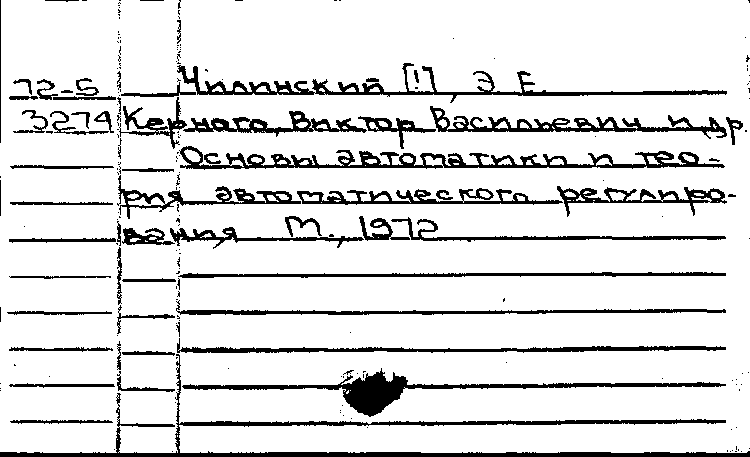 72-5 Чилинский [!], Э. Е.
3274 Кернаго, Виктор Васильевич и др.
Основы автоматики и тео-
рия автоматического регулиро-
вания М., 1972